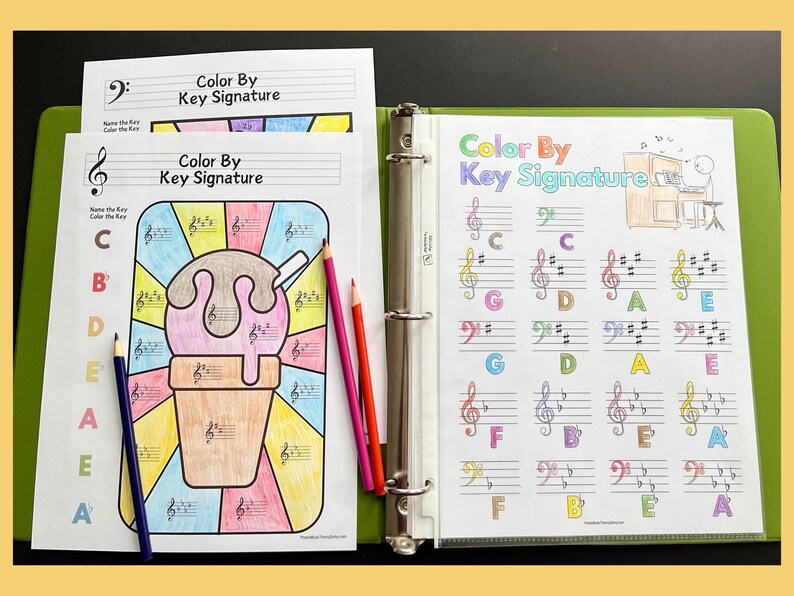 Color By
Key Signature
Name the Key
Color the Key
2♭
Color By
Key Signature
Name the Key
Color the Key
C
B♭
D
E♭
A
E
A♭
Color By
Key Signature
C C
G D A E
G D A E
F B♭ E♭ A♭
F B♭ E♭ A♭